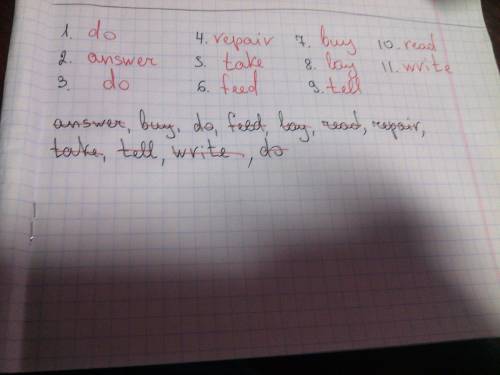 1. do 4. repair 7. buy 10. read
2. answer 5. take 8. lay 11. write
3. do 6. feed 9. tell
answer, buy, do, feed, lay, read, repair,
take, tell, write, do